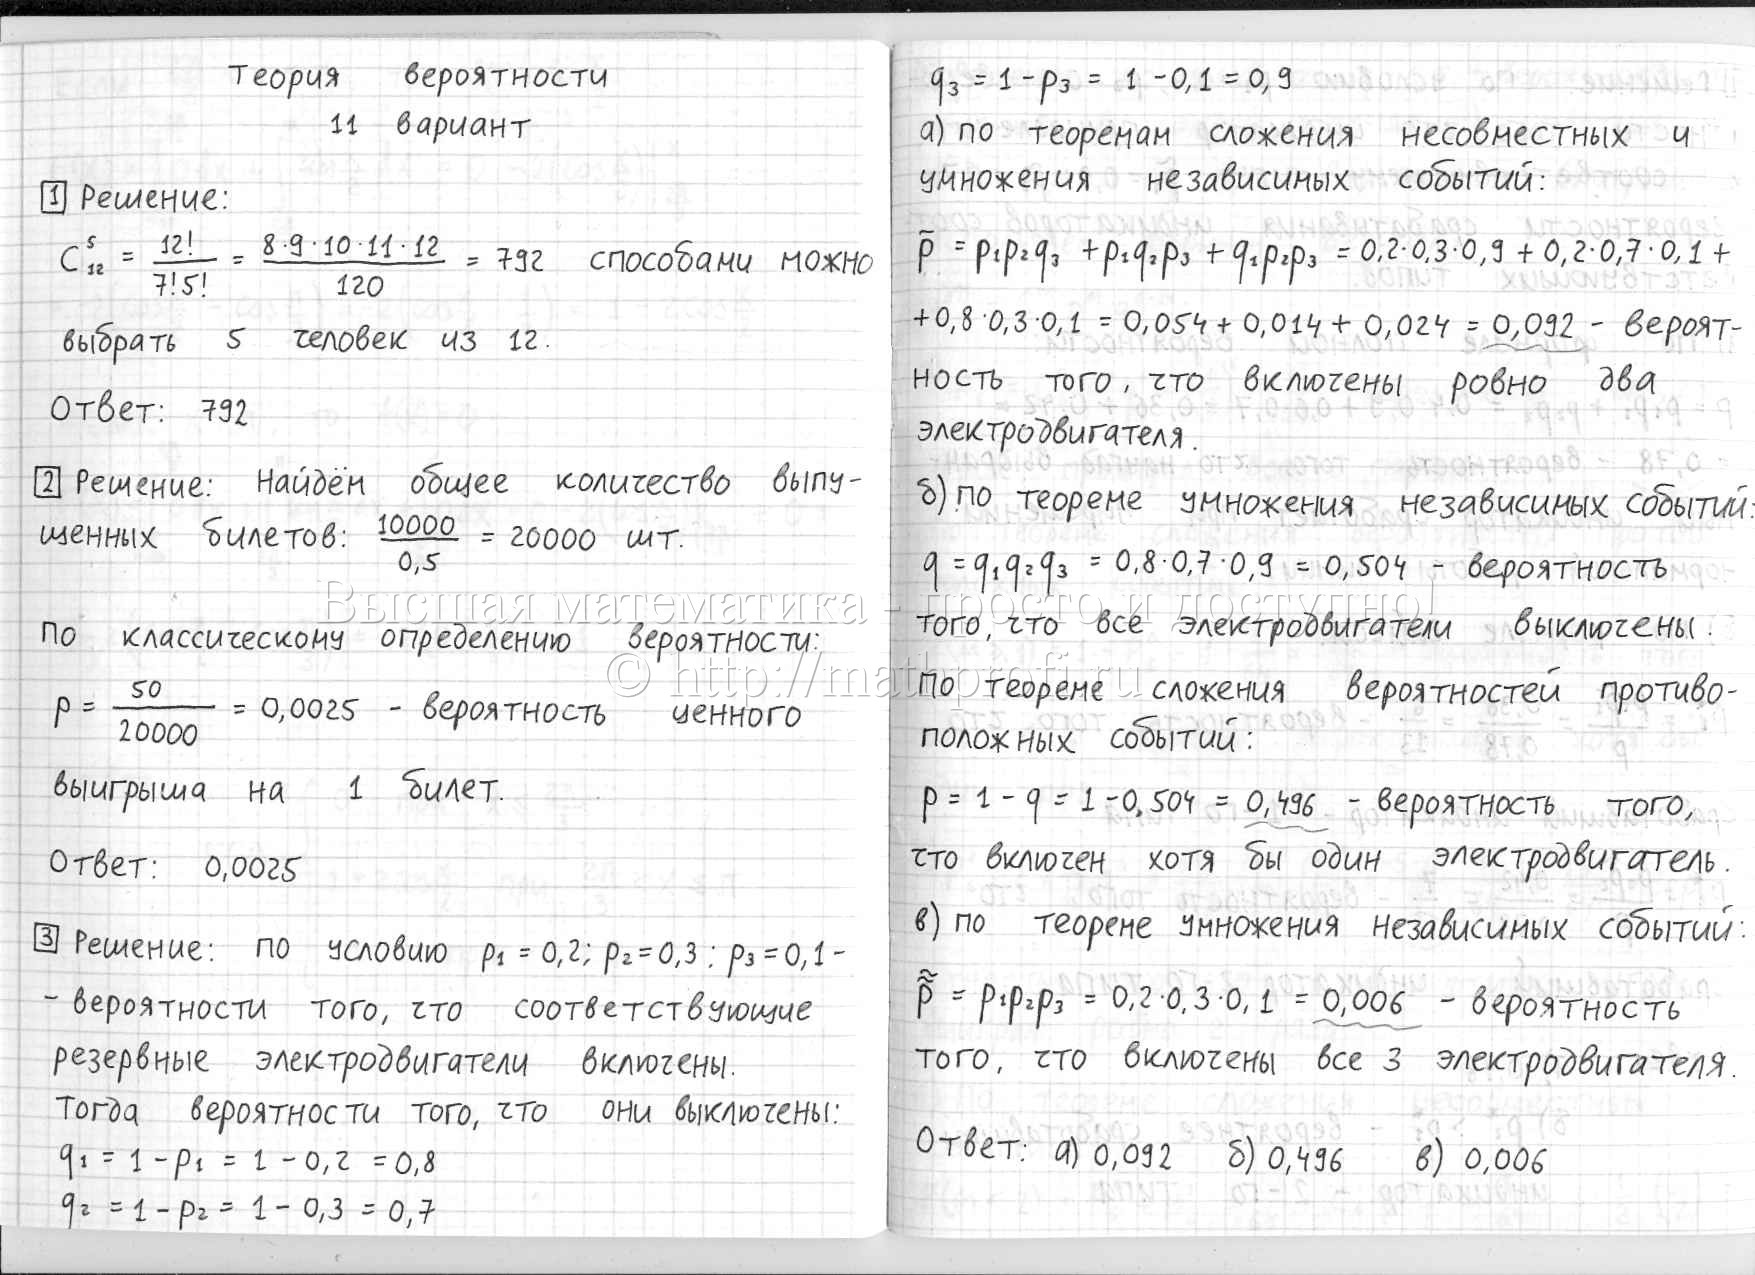 Теория вероятности
11 вариант
1 Решение:
C₁₂⁵ = 12!/7!5! = 8·9·10·11·12/120 = 792 способами можно
выбрать 5 человек из 12.
Ответ: 792
2 Решение: Найдём общее количество выпу-
щенных билетов: 10000/0,5 = 20000 шт.
По классическому определению вероятности:
p = 50/20000 = 0,0025 - вероятность ценного
выигрыша на 1 билет.
Ответ: 0,0025
3 Решение: по условию p₁ = 0,2; p₂ = 0,3; p₃ = 0,1 -
- вероятности того, что соответствующие
резервные электродвигатели включены.
Тогда вероятности того, что они выключены:
q₁ = 1 - p₁ = 1 - 0,2 = 0,8
q₂ = 1 - p₂ = 1 - 0,3 = 0,7
q₃ = 1 - p₃ = 1 - 0,1 = 0,9
а) по теоремам сложения несовместных и
умножения независимых событий:
p̄ = p₁p₂q₃ + p₁q₂p₃ + q₁p₂p₃ = 0,2·0,3·0,9 + 0,2·0,7·0,1 +
+ 0,8·0,3·0,1 = 0,054 + 0,014 + 0,024 = 0,092 - вероят-
ность того, что включены ровно два
электродвигателя.
б) по теореме умножения независимых событий:
q = q₁q₂q₃ = 0,8·0,7·0,9 = 0,504 - вероятность
того, что все электродвигатели выключены.
По теореме сложения вероятностей противо-
положных событий:
p = 1 - q = 1 - 0,504 = 0,496 - вероятность того,
что включен хотя бы один электродвигатель.
в) по теореме умножения независимых событий:
p̃̃ = p₁p₂p₃ = 0,2·0,3·0,1 = 0,006 - вероятность
того, что включены все 3 электродвигателя.
Ответ: а) 0,092 б) 0,496 в) 0,006
Высшая математика - просто и доступно!
© http://mathprofi.ru